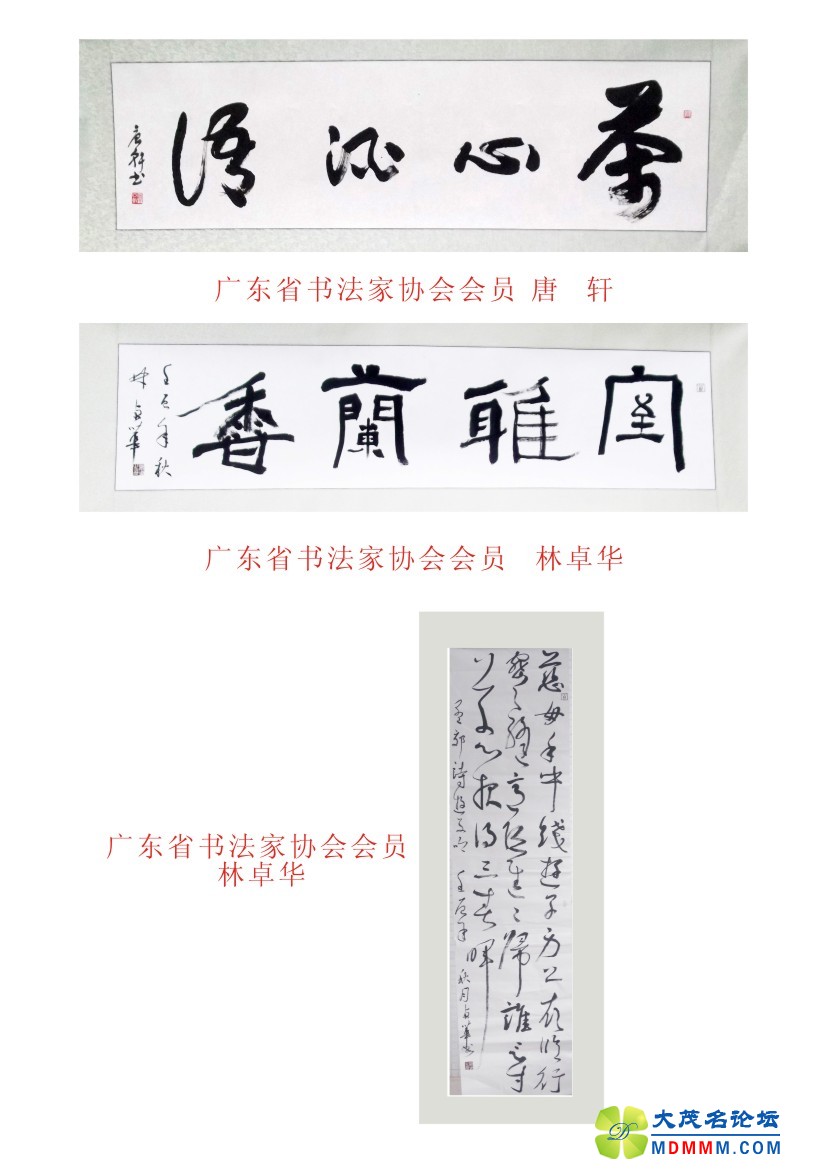 茶心
唐轩书
广东省书法家协会会员 唐 轩
室雅蘭香
壬辰年秋
林卓華
广东省书法家协会会员 林卓华
慈母手中綫遊子身上衣临行
密〻缝意恐迟〻歸誰言寸
草心报得三春晖
孟郊詩遊子吟 壬辰年秋月卓華书
广东省书法家协会会员
林卓华
大茂名论坛
MDMMM.COM